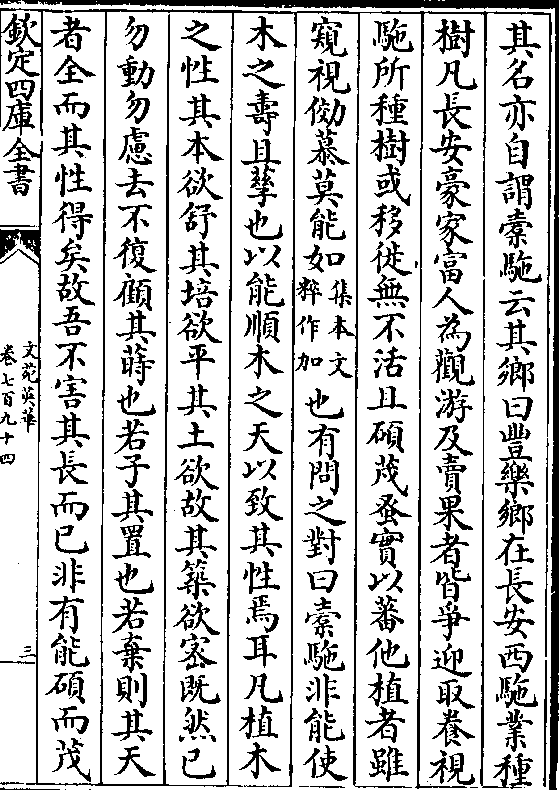 其名亦自謂橐駞云其鄉曰豐樂鄉在長安西駞業種
樹凡長安豪家富人為觀游及賣果者皆爭迎取養視
駞所種樹或移徙無不活且碩茂蚤實以蕃他植者雖
窺視傚慕莫能如集本文粹作加也有問之對曰橐駞非能使
木之壽且孳也以能順木之天以致其性焉耳凡植木
之性其本欲舒其培欲平其土欲故其築欲密既然已
勿動勿慮去不復顧其蒔也若子其置也若棄則其天
者全而其性得矣故吾不害其長而已非有能碩而茂
欽定四庫全書
文苑英華
卷七百九十四
三